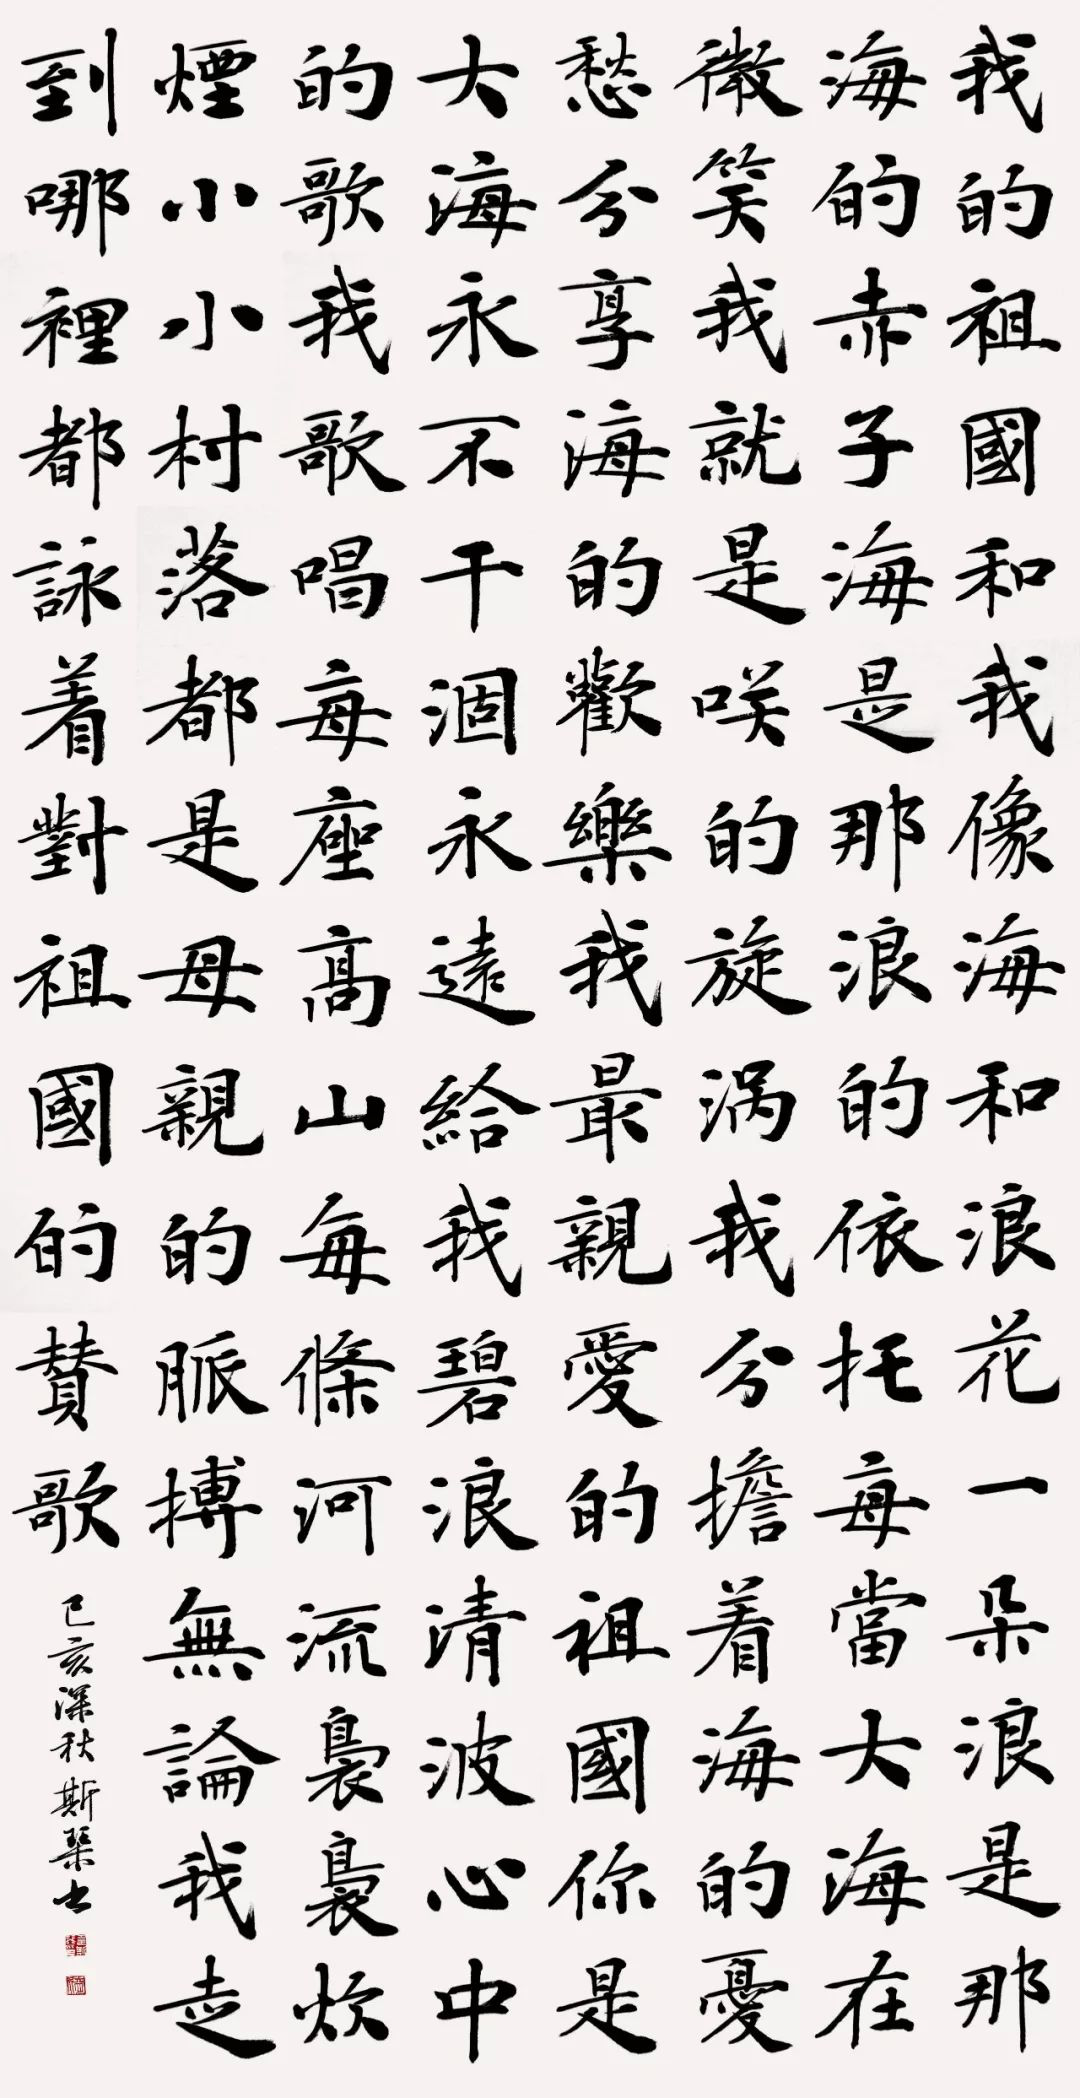 我的祖國和我像海和浪花一朵浪是那
海的赤子海是那浪的依托每當大海在
微笑我就是咲的旋涡我分擔着海的憂
愁分享海的歡樂我最親愛的祖國你是
大海永不干涸永遠給我碧浪清波心中
的歌我歌唱每座高山每條河流裊裊炊
煙小小村落都是母親的脈搏無論我走
到哪裡都詠着對祖國的賛歌
己亥深秋斯琹书